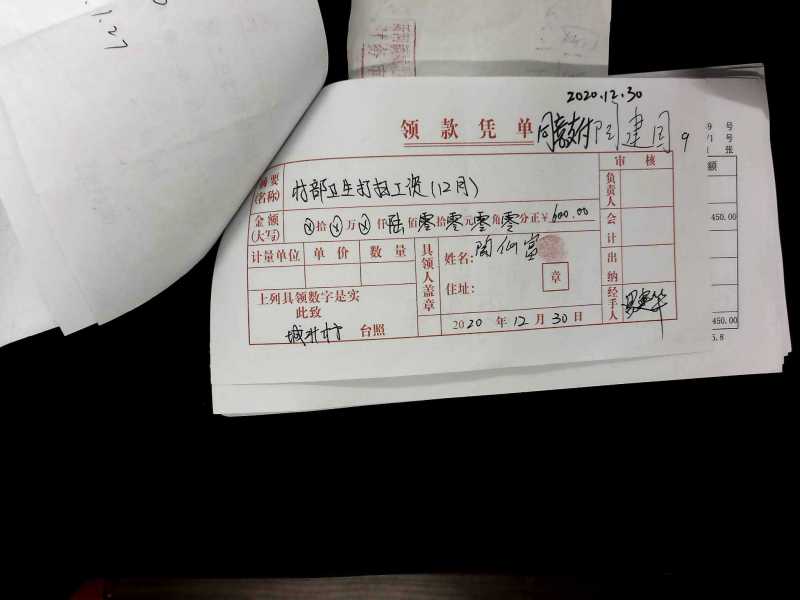 2020.12.30
领款凭单
同意支付
建国
9
9 号
/1 号
张
审核
摘要
(名称)
村部卫生打扫工资(12月)
负责人
额
金额
(大写)
ⓧ拾ⓧ万ⓧ仟陆佰零拾零元零角零分正¥600.00
会计
450.00
计量单位 单价 数量
具领人盖章
姓名:
仙富
住址:
章
出纳
上列具领数字是实
此致
城北村 台照
2020年12月30日
经手人
450.00
5.8